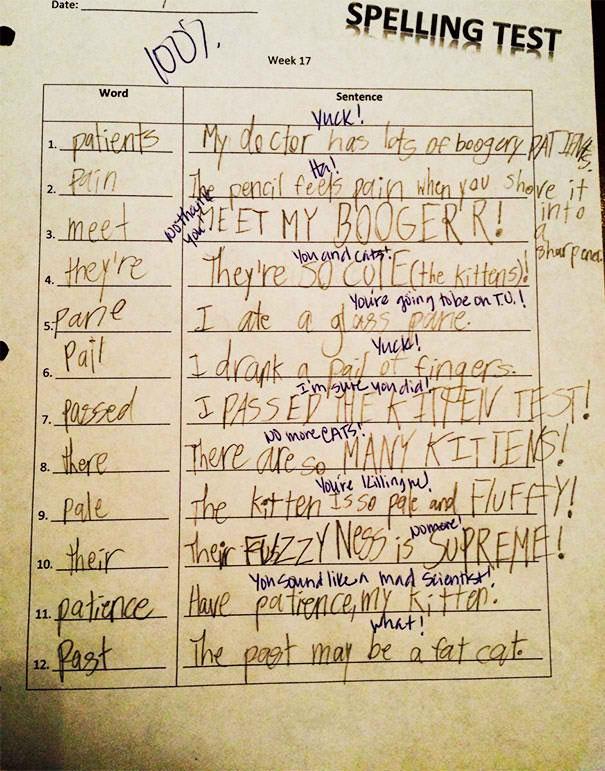 Date:
SPELLING TEST
100%
Week 17
Word Sentence
Yuck!
1. patients My doctor has lots of boogery PATIENTS.
Ha!
2. Pain The pencil feels pain when you shove it into a sharpener.
No thank you!
3. meet MEET MY BOOGER'R!
You and cats!
4. they're They're SO CUTE (the kittens)!
You're going to be on T.V.!
5. pane I ate a glass pane.
Yuck!
6. Pail I drank a pail of fingers.
I'm sure you did!
7. passed I PASSED THE KITTEN TEST!
NO more CATS!
8. there There are so MANY KITTENS!
You're killing me!
9. pale The kitten is so pale and FLUFFY!
No more!
10. their Their FUZZYNess is SUPREME!
You sound like a mad scientist!
11. patience Have patience, my kitten.
What!
12. Past The past may be a fat cat.